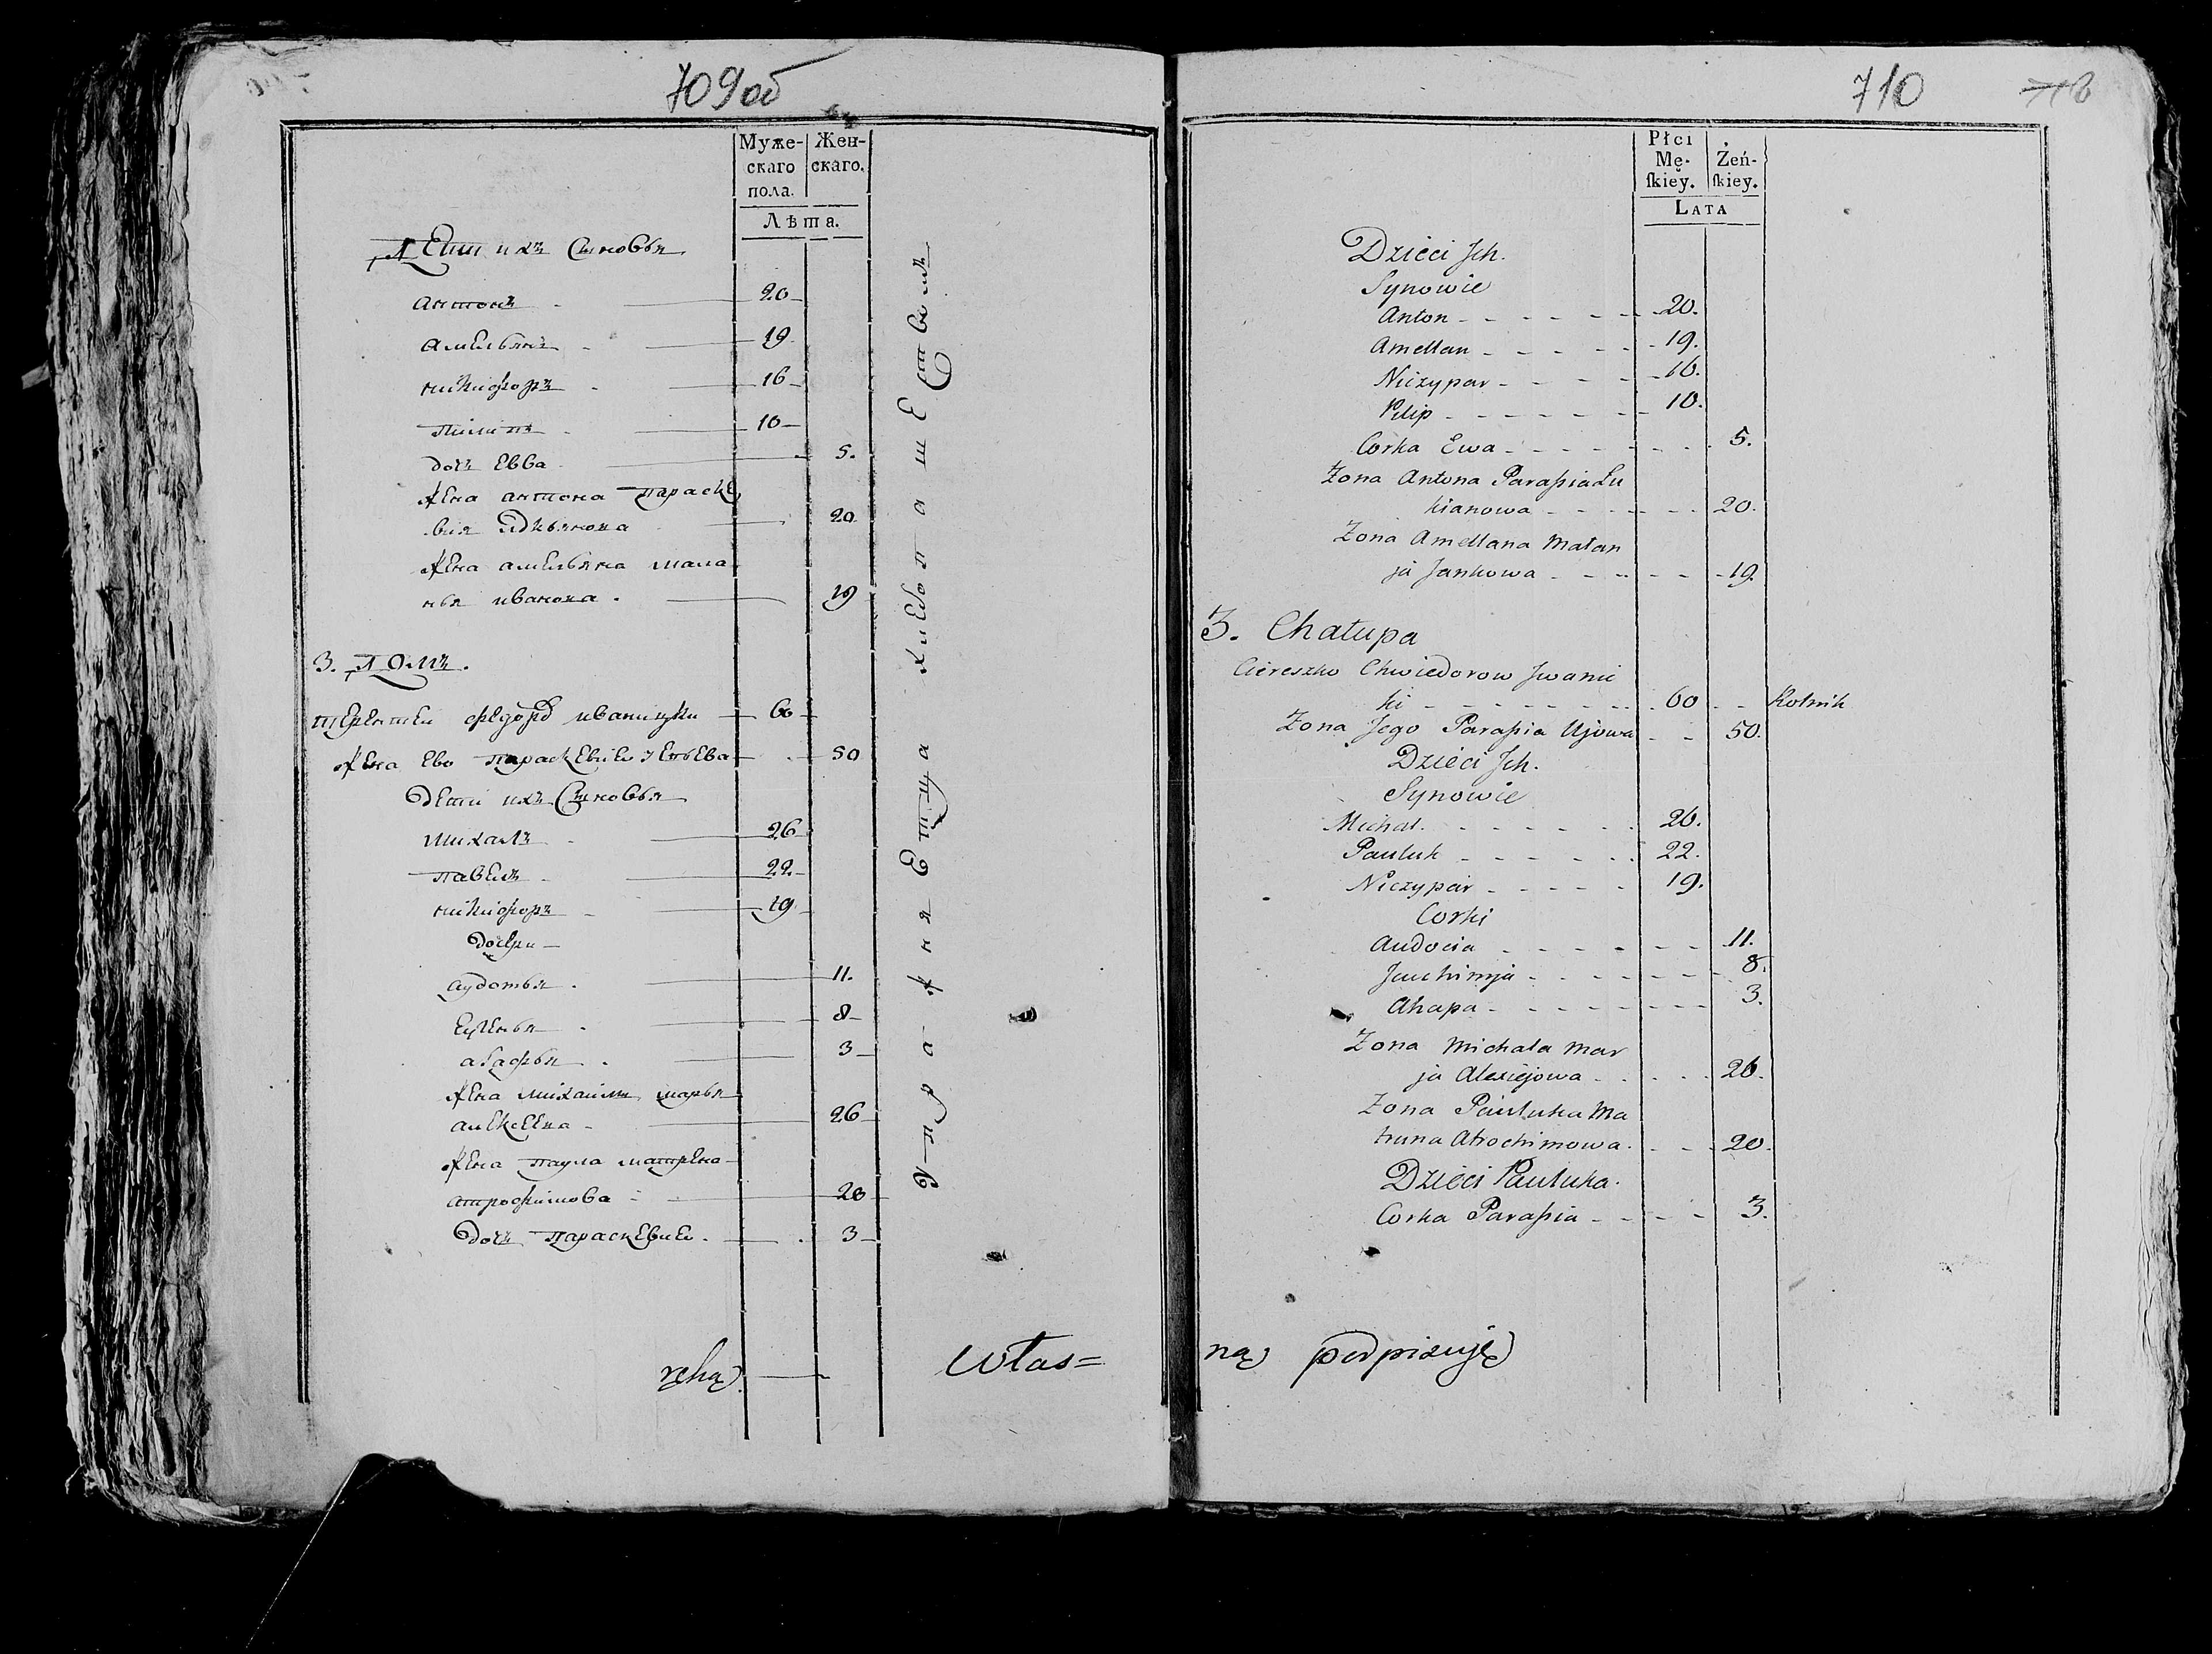 709об
Муже-
скаго
пола.
Жен-
скаго.
Лѣта.
Дети ихъ Сыновья
Антонъ 20
Амельянъ 19
никифоръ 16
пилипъ 10
дочь Евва 5.
Жена антона параске
вия 20
Жена амельяна мала
нья иванова 19
3. Домъ.
терентеи федоро иваницки 60
Жена Ево параскевию 50
Дети ихъ Сыновья
михалъ 26
павелъ 22
никифоръ 19
дочери
аудотья 11.
8
агафья 3
Жена михаилы марья
алексеевна 26
Жена паула матрена
атрофимова 20
Дочъ параскевию 3
Упра- жня етца хлебопашеством
ręką
włas=
710
Płci
Mę-
skiey.
Żeń-
skiey.
LATA
Dzieci Jch.
Synowie
Anton 20.
Amellan 19.
Niczypar 16.
Pilip 10.
Corka Ewa 5.
Zona Antona Paraſsia Łu
kianowa 20.
Zona Amellana Małan
ja Jankowa 19.
3. Chałupa
Ciereszko Chwiedorow Jwanic
ki 60 Rolnik
Zona Jego Paraſsia Ujowa 50.
Dzieci Jch.
Synowie
Michał 26.
Pauluk 22.
Niczypar 19.
Corki
Audocia 11.
Jauchimja 8.
Ahapa 3.
Zona Michała Mar
ja Alexiejowa 26.
Zona Pauluka Ma
truna Atrochimowa 20.
Dzieci Pauluka.
Corka Paraſsia 3.
ną podpisuję